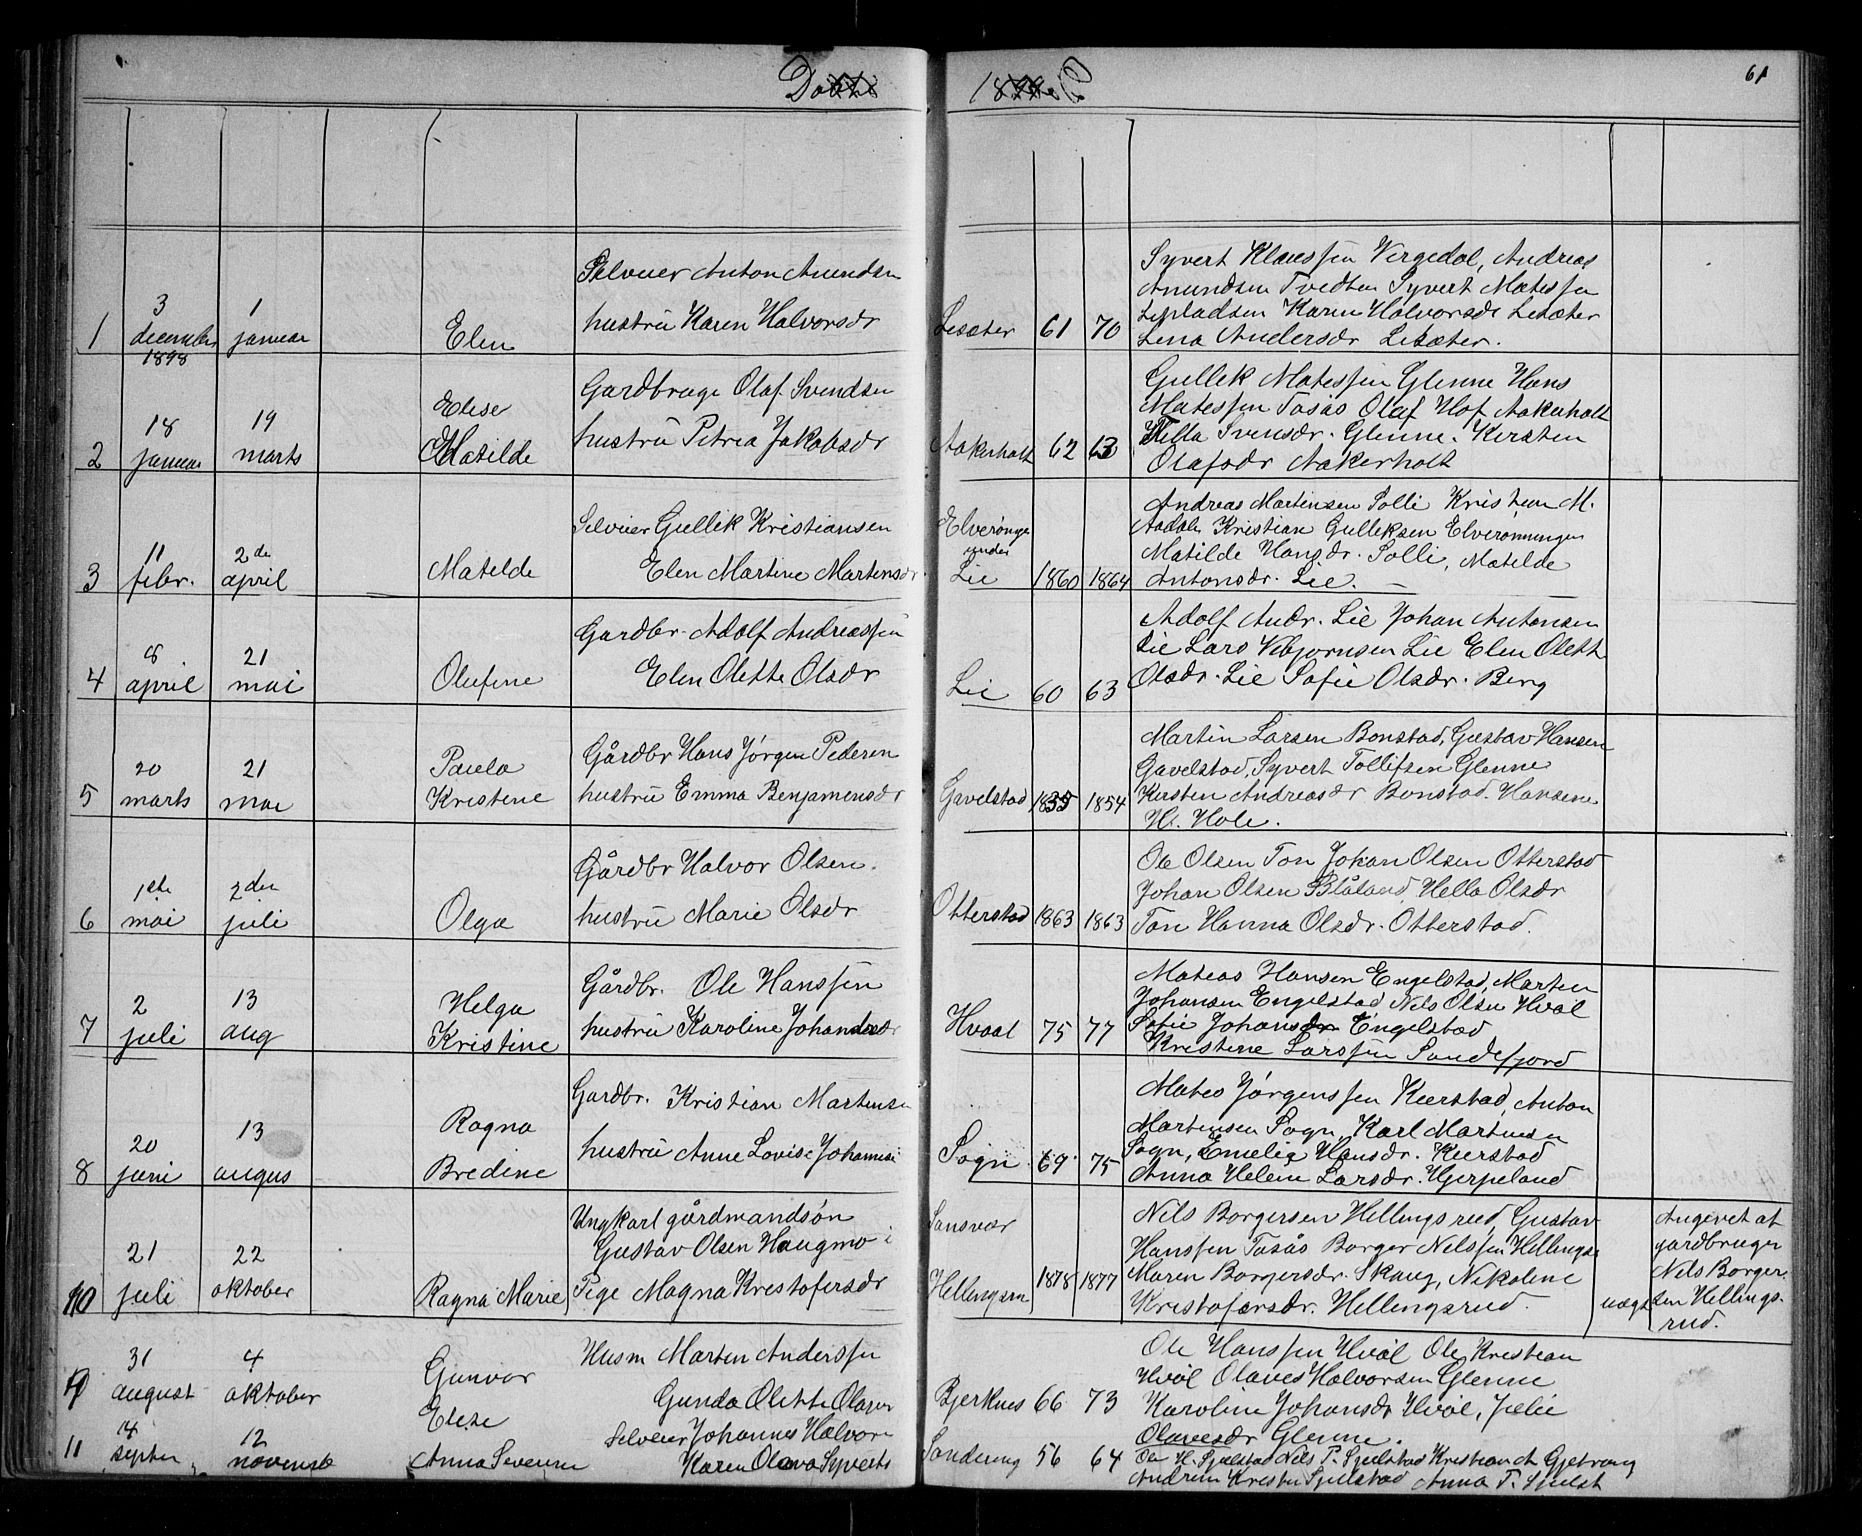 61
1
3
december
1898
1
januar
Elen
Selveier Anton Amundsen
hustru Karen Halvorsdr
Lesæter
61
70
Syvert Klaussen Vergedal, Andreas
Amundsen Tvedten Syvert Matessen
Karen Halvorsdr Lesæter
Lina Andersdr Lesæter.
2
18
januar
19
marts
Elise
Matilde
Gardbruge Olaf Svendsen
hustru Petrea Jakobsdr
Aakerholt
62
63
Gullek Matessen Glenne Hans
Matessen Tasås Olaf Hof Aakerholt
Svensdr. Glenne. Kersten
Olafsdr Aakerholt
3
11
febr.
2de
april
Matelde
Selveier Gullek Kristiansen
Elen Martine Martensdr.
under
Lie
1860
1864
Andreas Martinsen Solli M.
Aadals Kristian Galleksen Elverønningen
Matilde Hansdr. Solli, Matelde
Antonsdr. Lie.
4
8
april
21
mai
Olufine
Gardbr. Adolf Andreassen
Elen Olette Olsdr
Lie
60
63
Adolf Andr. Lie Johan Antonsen
Lie Lars Vebjornsen Lie Elen Olette
Olsdr. Lie Sofie Olsdr. Berg
5
20
marts
21
mai
Paula
Kristine
Gårdbr Hans Jørgen Pedersen
hustru Emma Benjamensdr
Gavelstad
1854
Martin Larsen Bonstad, Gustav Hansen
Gavelstad, Syvert Tollifsen Glenne
Kersten Andreasdr Bonstad. Hansine
H. Hole.
6
1ste
mai
2den
juli
Olga
Gårdbr Halvor Olsen.
hustru Marie Olsdr
Otterstad
1863
1863
Ole Olsen Ton Johan Olsen Otterstad
Johan Olsen Blåtand, Hella Olsdr
Ton Hanna Olsdr. Otterstad.
7
2
juli
13
aug
Helga
Kristine
Gårdbr. Ole Hanssen
hustru Karoline Johansdr
Hvaal
75
77
Mateas Hansen Engelstad, Marten
Johansen Engelstad Nils Olsen Hvål
Sofie Johansdr Engelstad
Kristine Larssen Sandefjord
8
20
juni
13
augus
Ragna
Bredine
Gardbr. Kristian Martensen
hustru Anne Lovise Johannesd
Sogn
69
75
Mateo Jørgenssen Keerstad, Anton
Martensen Sogn, Karl Martinsen
Sogn, Emelie Hansdr. Keerstad
Anna Helene Larsdr. Hjerpeland
10
21
juli
22
oktober
Ragna Marie
Ungkarl gårdmandsøn
Gustav Olsen Haugmo i
Pige Magna Krestofersdr
Sansvær
Hellingsru
1878
1877
Nils Borgersen Hellingsrud, Gustav
Hanssen Tasås Borger Nelssen Hellingsr
Maren Borgersdr. Skaug, Nikoline
Krestofersdr. Hellingsrud.
uægt
Angevet af
gardbruger
Nils Borger
sen Hellings-
rud.
9
31
august
4
oktober
Gunvor
Elise
Husm Marten Anderssen
Gunda Olette Olavesd
Bjerknes
66
73
Ole Hanssen Hvål Ole Krestian
Hvål Olaves Halvorsen Glenne
Karoline Johansdr Hvål, Julie
Olavesdr Glenne.
11
4
septem
12
novemb
Anna Severine
Selveier Johannes Halvors
Karen Olava Syverts
Sondereng
56
64
Ole H. Sjulstad Nils P. Sjulstad Krestian A Gjetrang
Kresten Sjulstad Anna T. Sjulst